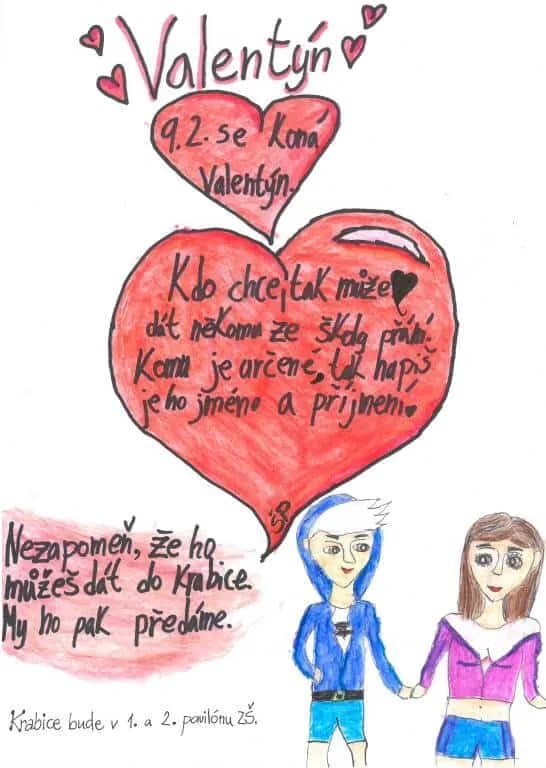 Valentýn
9.2. se koná
Valentýn.
Kdo chce, tak může
dát někomu ze školy přání.
Komu je určené, tak napiš
jeho jméno a příjmení.
Nezapomeň, že ho
můžeš dát do krabice.
My ho pak předáme.
Krabice bude v 1. a 2. pavilónu ZŠ.